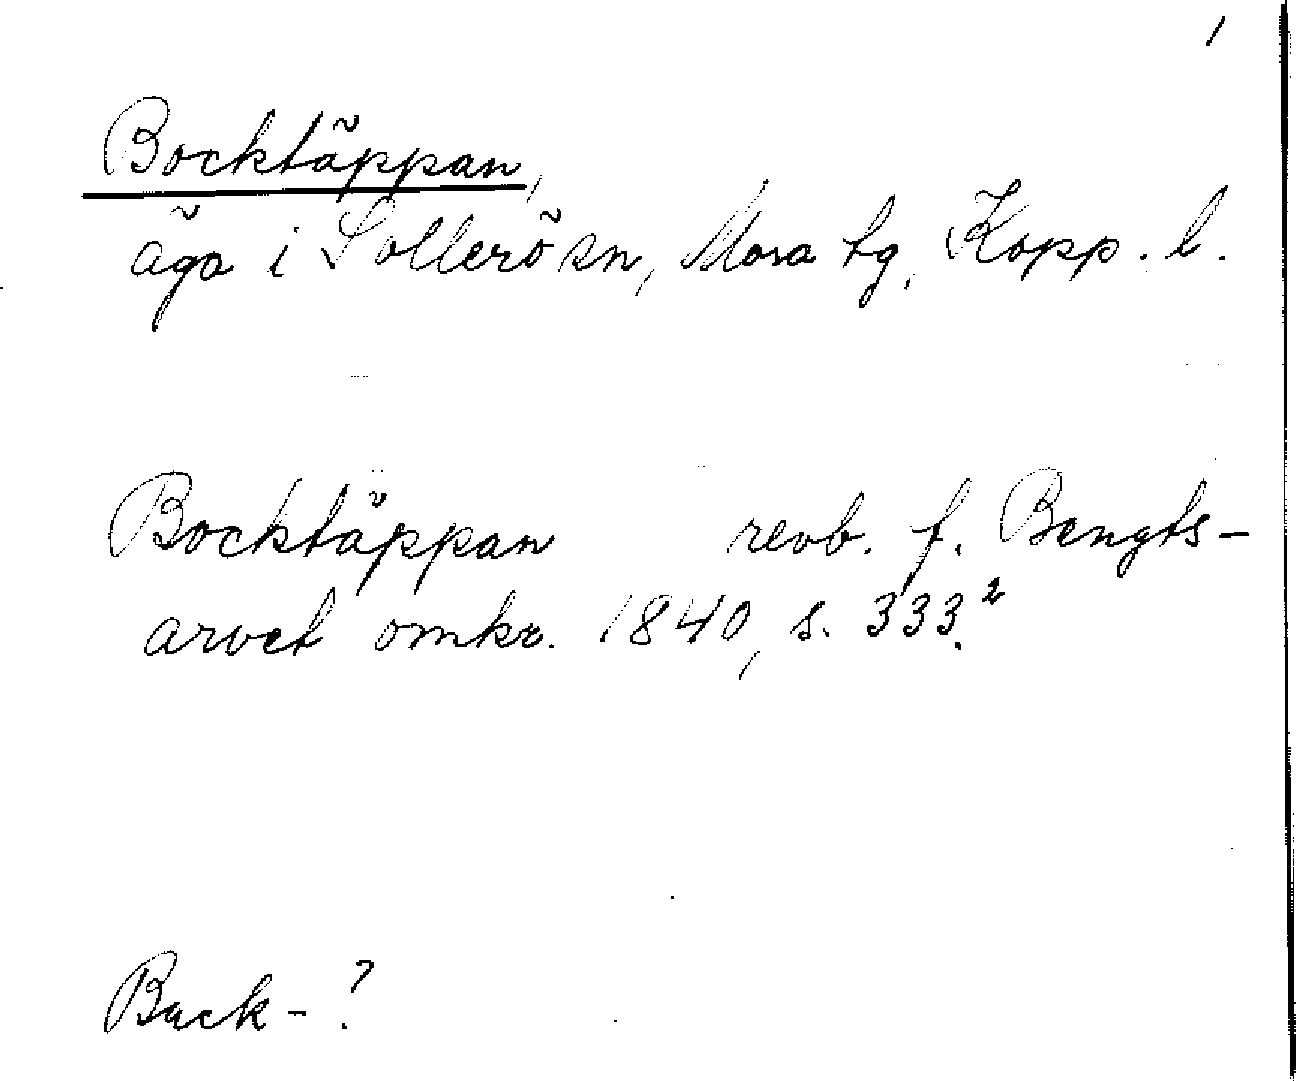 1
Bocktäppan,
äga i Sollerö sn, Mora tg, Kopp. l.
Bocktäppan revb. f. Bengts-
arvet omkr. 1840, s. 333.²
Back-?